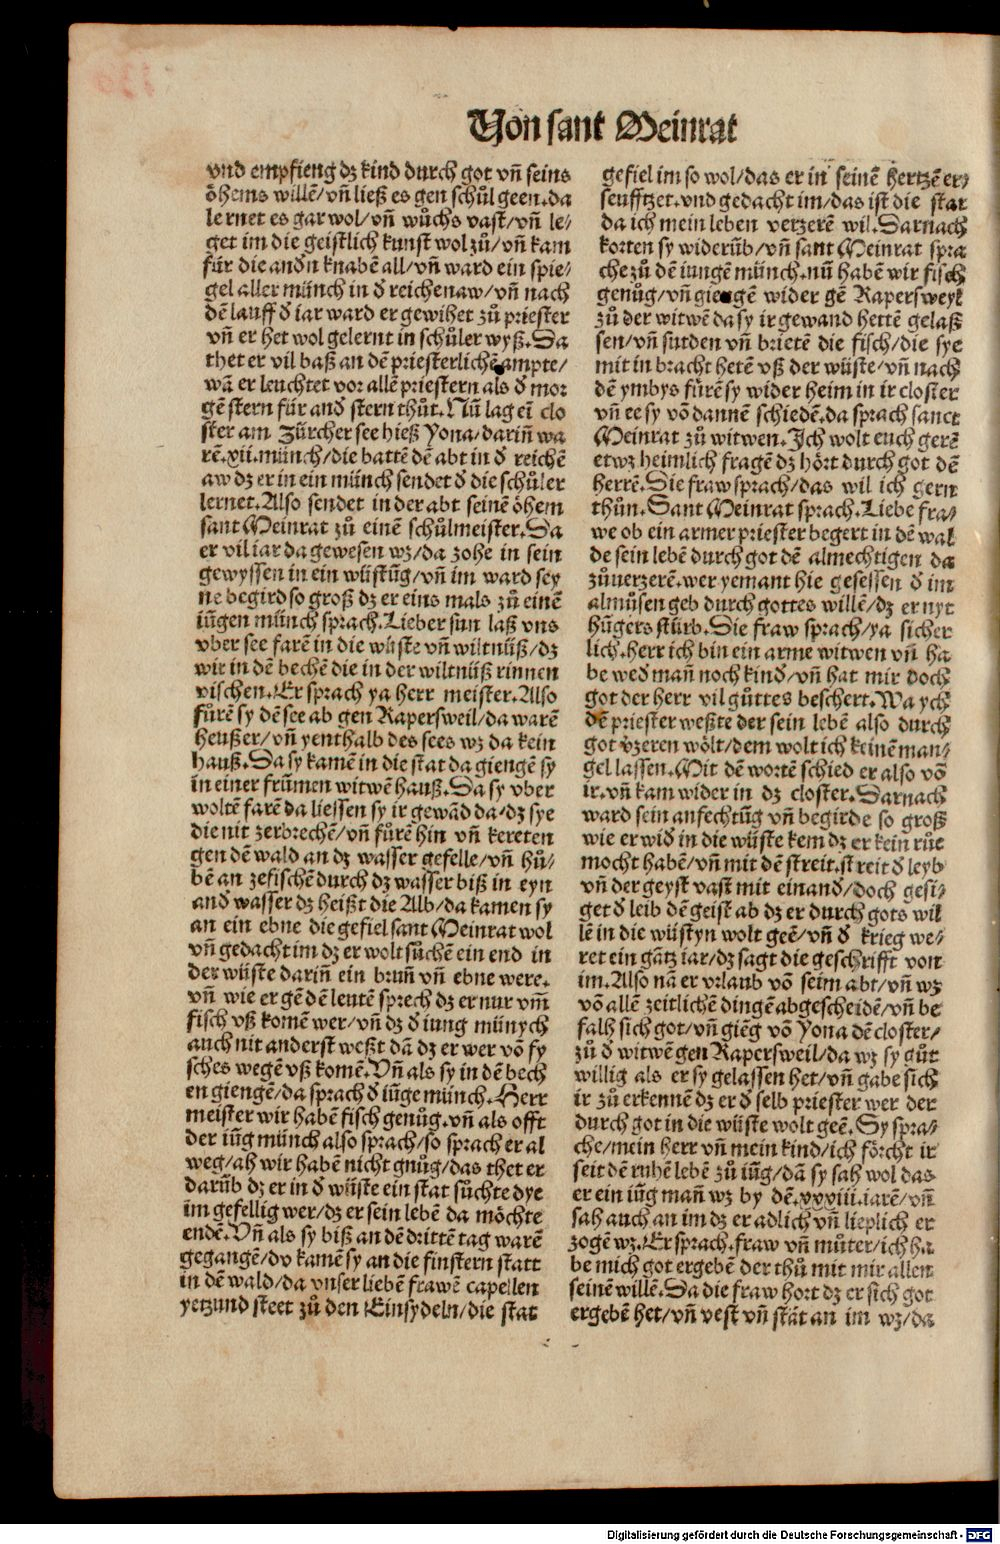 Von sant Meinrat
vnd empfieng dz kind durch got vñ seins
öhems willẽ/vñ ließ es gen schůl geen.da
le rnet es gar wol/vñ wůchs vast/vñ le/
get im die geistlich kunst wol zů/vñ kam
für die andn knabẽ all/vñ ward ein spie/
gel aller münch in d reichenaw/vñ nach
dẽ lauff d iar ward er gewihet zů priester
vñ er het wol gelernt in schůler wyß.Da
thet er vil baß an dẽ priesterlichẽ ampte/
wã er leuchtet vor allẽ priestern als d mor
gẽ stern für and stern thůt.Nũ lag eĩ clo
ster am Zürcher see hieß Yona/dariñ wa
rẽ.xii.münch/die battẽ dẽ abt in d reichẽ
aw dz er in ein münch sendet d die schůler
lernet.Also sendet in der abt seinẽ öhem
sant Meinrat zů einẽ schůlmeister.Da
er vil iar da gewesen wz/da zohe in sein
gewyssen in ein wüstũg/vñ im ward sey
ne begird so groß dz er eins mals zů einẽ
iũgen münch sprach.Lieber sun laß vns
vber see farẽ in die wůste vñ wiltnüß/dz
wir in dẽ bechẽ die in der wiltnüß rinnen
vischen.Er sprach ya herr meister.Also
fůrẽ sy dẽ see ab gen Rapersweil/da warẽ
heußer/vñ yenthalb des sees wz da kein
hauß.Da sy kamẽ in die stat da giengẽ sy
in einer frũmen witwẽ hauß.Da sy vber
woltẽ farẽ da liessen sy ir gewãd da/dz sye
die nit zerbrechẽ/vñ fůrẽ hin vñ kereten
gen dẽ wald an dz wasser gefelle/vñ hů/
bẽ an zefischẽ durch dz wasser biß in eyn
and wasser dz heißt die Alb/da kamen sy
an ein ebne die gefiel sant Meinrat wol
vñ gedacht im dz er wolt sůchẽ ein end in
der wüste dariñ ein bruñ vñ ebne were.
vñ wie er gẽ dẽ leutẽ sprech dz er nur vm̃
fisch vß komẽ wer/vñ dz d iung münych
auch nit anderst weßt dã dz er wer võ fy
sches wegẽ vß komẽ.Vñ als sy in dẽ bech
en giengẽ/da sprach d iũge münch.Herr
meister wir habẽ fisch genůg.vñ als offt
der iũg münch also sprach/so sprach er al
weg/ah wir habẽ nicht gnůg/das thet er
darũb dz er in d wüste ein stat sůchte dye
im gefellig wer/dz er sein lebẽ da möchte
endẽ.Vñ als sy biß an dẽ drittẽ tag warẽ
gegangẽ/dv kamẽ sy an die finstern statt
in dẽ wald/da vnser liebẽ frawẽ capellen
yetzund steet zů den Einsydeln/die stat
gefiel im so wol/das er in seinẽ hertzẽ er/
seufftzet.vnd gedacht im/das ist die stat
da ich mein leben verzerẽ wil.Darnach
korten sy widerũb/vñ sant Meinrat spra
che zů dẽ iungẽ münch.nũ habẽ wir fisch
genůg/vñ giengẽ wider gẽ Rapersweyl
zů der witwẽ da sy ir gewand hettẽ gelaß
sen/vñ sutden vñ brietẽ die fisch/die sye
mit in bracht hetẽ vß der wüste/vñ nach
dẽ ymbys fůrẽ sy wider heim in ir closter
vñ ee sy võ dannẽ schiedẽ.da sprach sanct
Meinrat zů witwen.Ich wolt euch gerẽ
etwz heimlich fragẽ dz hört durch got dẽ
herrẽ.Die fraw sprach/das wil ich gern
thůn.Sant Meinrat sprach.Liebe fra/
we ob ein armer priester begert in dẽ wal
de sein lebẽ durch got dẽ almechtigen da
zůuerzerẽ.wer yemant hie gesessen d im
almůsen geb durch gottes willẽ/dz er nyt
hũgers stürb.Die fraw sprach/ya sicher
lich.herr ich bin ein arme witwen vñ ha
be wed mañ noch kind/vñ hat mir doch
got der herr vil gůttes beschert.Wa ych
dẽ priester weßte der sein lebẽ also durch
got v̉zeren wölt/dem wolt ich keinẽ man/
gel lassen.Mit dẽ wortẽ schied er also võ
ir.vñ kam wider in dz closter.Darnach
ward sein anfechtũg vñ begirde so groß
wie er wid in die wüste kem dz er kein růe
mocht habẽ/vñ mit dẽ streit.streit d leyb
vñ der geyst vast mit einand/doch gesi/
get d leib dẽ geist ab dz er durch gots wil
lẽ in die wüstyn wolt geẽ/vñ d krieg we/
ret ein gãtz iar/dz sagt die geschrifft von
im.Also nã er vrlaub võ seim abt/vñ wz
võ allẽ zeitlichẽ dingẽ abgescheidẽ/vñ be
falh sich got/vñ giẽg võ Yona dẽ closter/
zů d witwẽ gen Rapersweil/da wz sy gůt
willig als er sy gelassen het/vñ gabe sich
ir zů erkennẽ dz er d selb priester wer der
durch got in die wüste wolt geẽ.Sy spra/
che/mein herr vñ mein kind/ich förcht ir
seit dẽ ruhẽ lebẽ zů iũg/dã sy sah wol das
er ein iũg mañ wz by dẽ.xxviii.iarẽ/vñ
sah auch an im dz er adlich vñ lieplich er
zogẽ wz.Er sprach.fraw vñ můter/ich ha
be mich got ergebẽ der thů mit mir allen
seinẽ willẽ.Da die fraw hort dz er sich got
ergebẽ het/vñ vest vñ stät an im wz/da
Digitalisierung gefördert durch die Deutsche Forschungsgemeinschaft - DFG